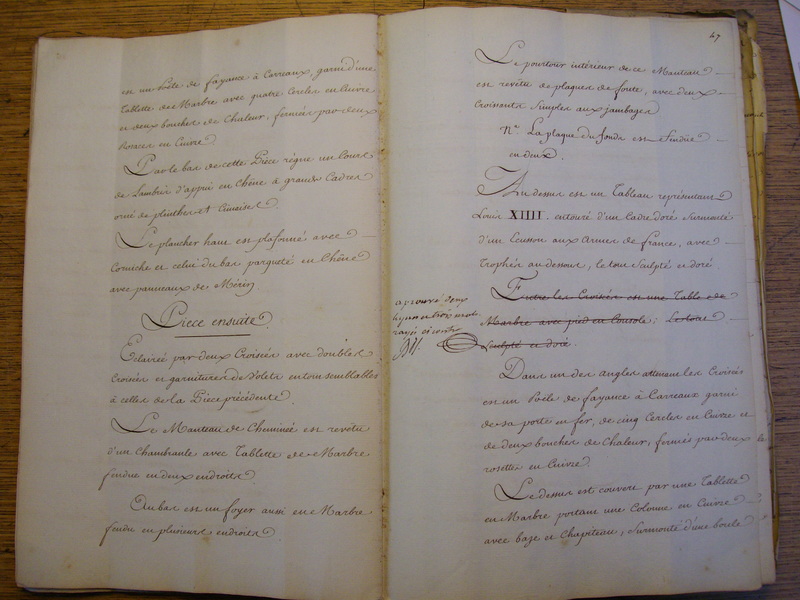 est un Poële de fayance à Carreaux, garni d'une
Tablette de Marbre avec quatre Cercles en Cuivre
et deux bouches de Chaleur, fermées par deux
Rosaces en Cuivre.
Par le bas de cette Pièce règne un Cours
de Lambris d'appui en Chêne à grands Cadres
orné de plinthes et Cimaises
Le plancher haut est plafonné avec
Corniche et celui du bas parqueté en Chêne
avec panneaux de Mérin.
Piece ensuite.
Eclairée par deux Croisées avec doubles
Croisées et garnitures de Volets en tout semblables
à celles de la Piece précédente.
Le Manteau de Cheminée est revêtu
d'un Chambranle avec Tablette de Marbre
fendue en deux endroits.
Au bas est un foyer aussi en Marbre
fendu en plusieurs endroits
47
Le pourtour intérieur de ce Manteau
est revêtu de plaques de fonte, avec deux
Croissants Simples aux jambages
Na La plaque du fonds est fendue
en deux.
Au dessus est un Tableau représentant
Louis XIIII. entouré d'un Cadre doré Surmonté
d'un Ecusson aux Armes de france, avec
Trophés au dessous, le tout Sculpté et doré.
Entre les Croisées est une Table de
Marbre avec pied en Console, Le tout
Sculpté et doré.
approuvé deux
lignes et trois mots
rayés ci contre
Dans un des angles attenant les Croisées
est un Poële de fayance à Carreaux garni
de sa porte en fer, de cinq Cercles en Cuivre et
de deux bouches de Chaleur, fermées par deux
rosettes en Cuivre.
Le dessus est couvert par une Tablette
en Marbre portant une Colonne en Cuivre
avec baze et Chapiteau, Surmonté d'une boule